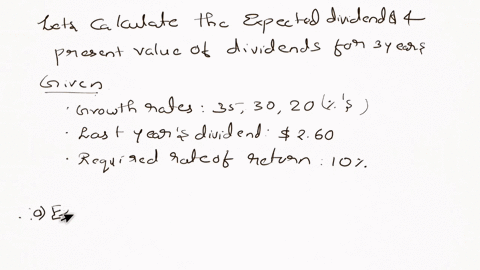 Lets Calculate the Expected dividends &
present value of dividends for 3 years
Given
· Growth rates : 35, 30, 20 (%'s)
· Last year's dividend · $ 2.60
· Required rate of return : 10%.